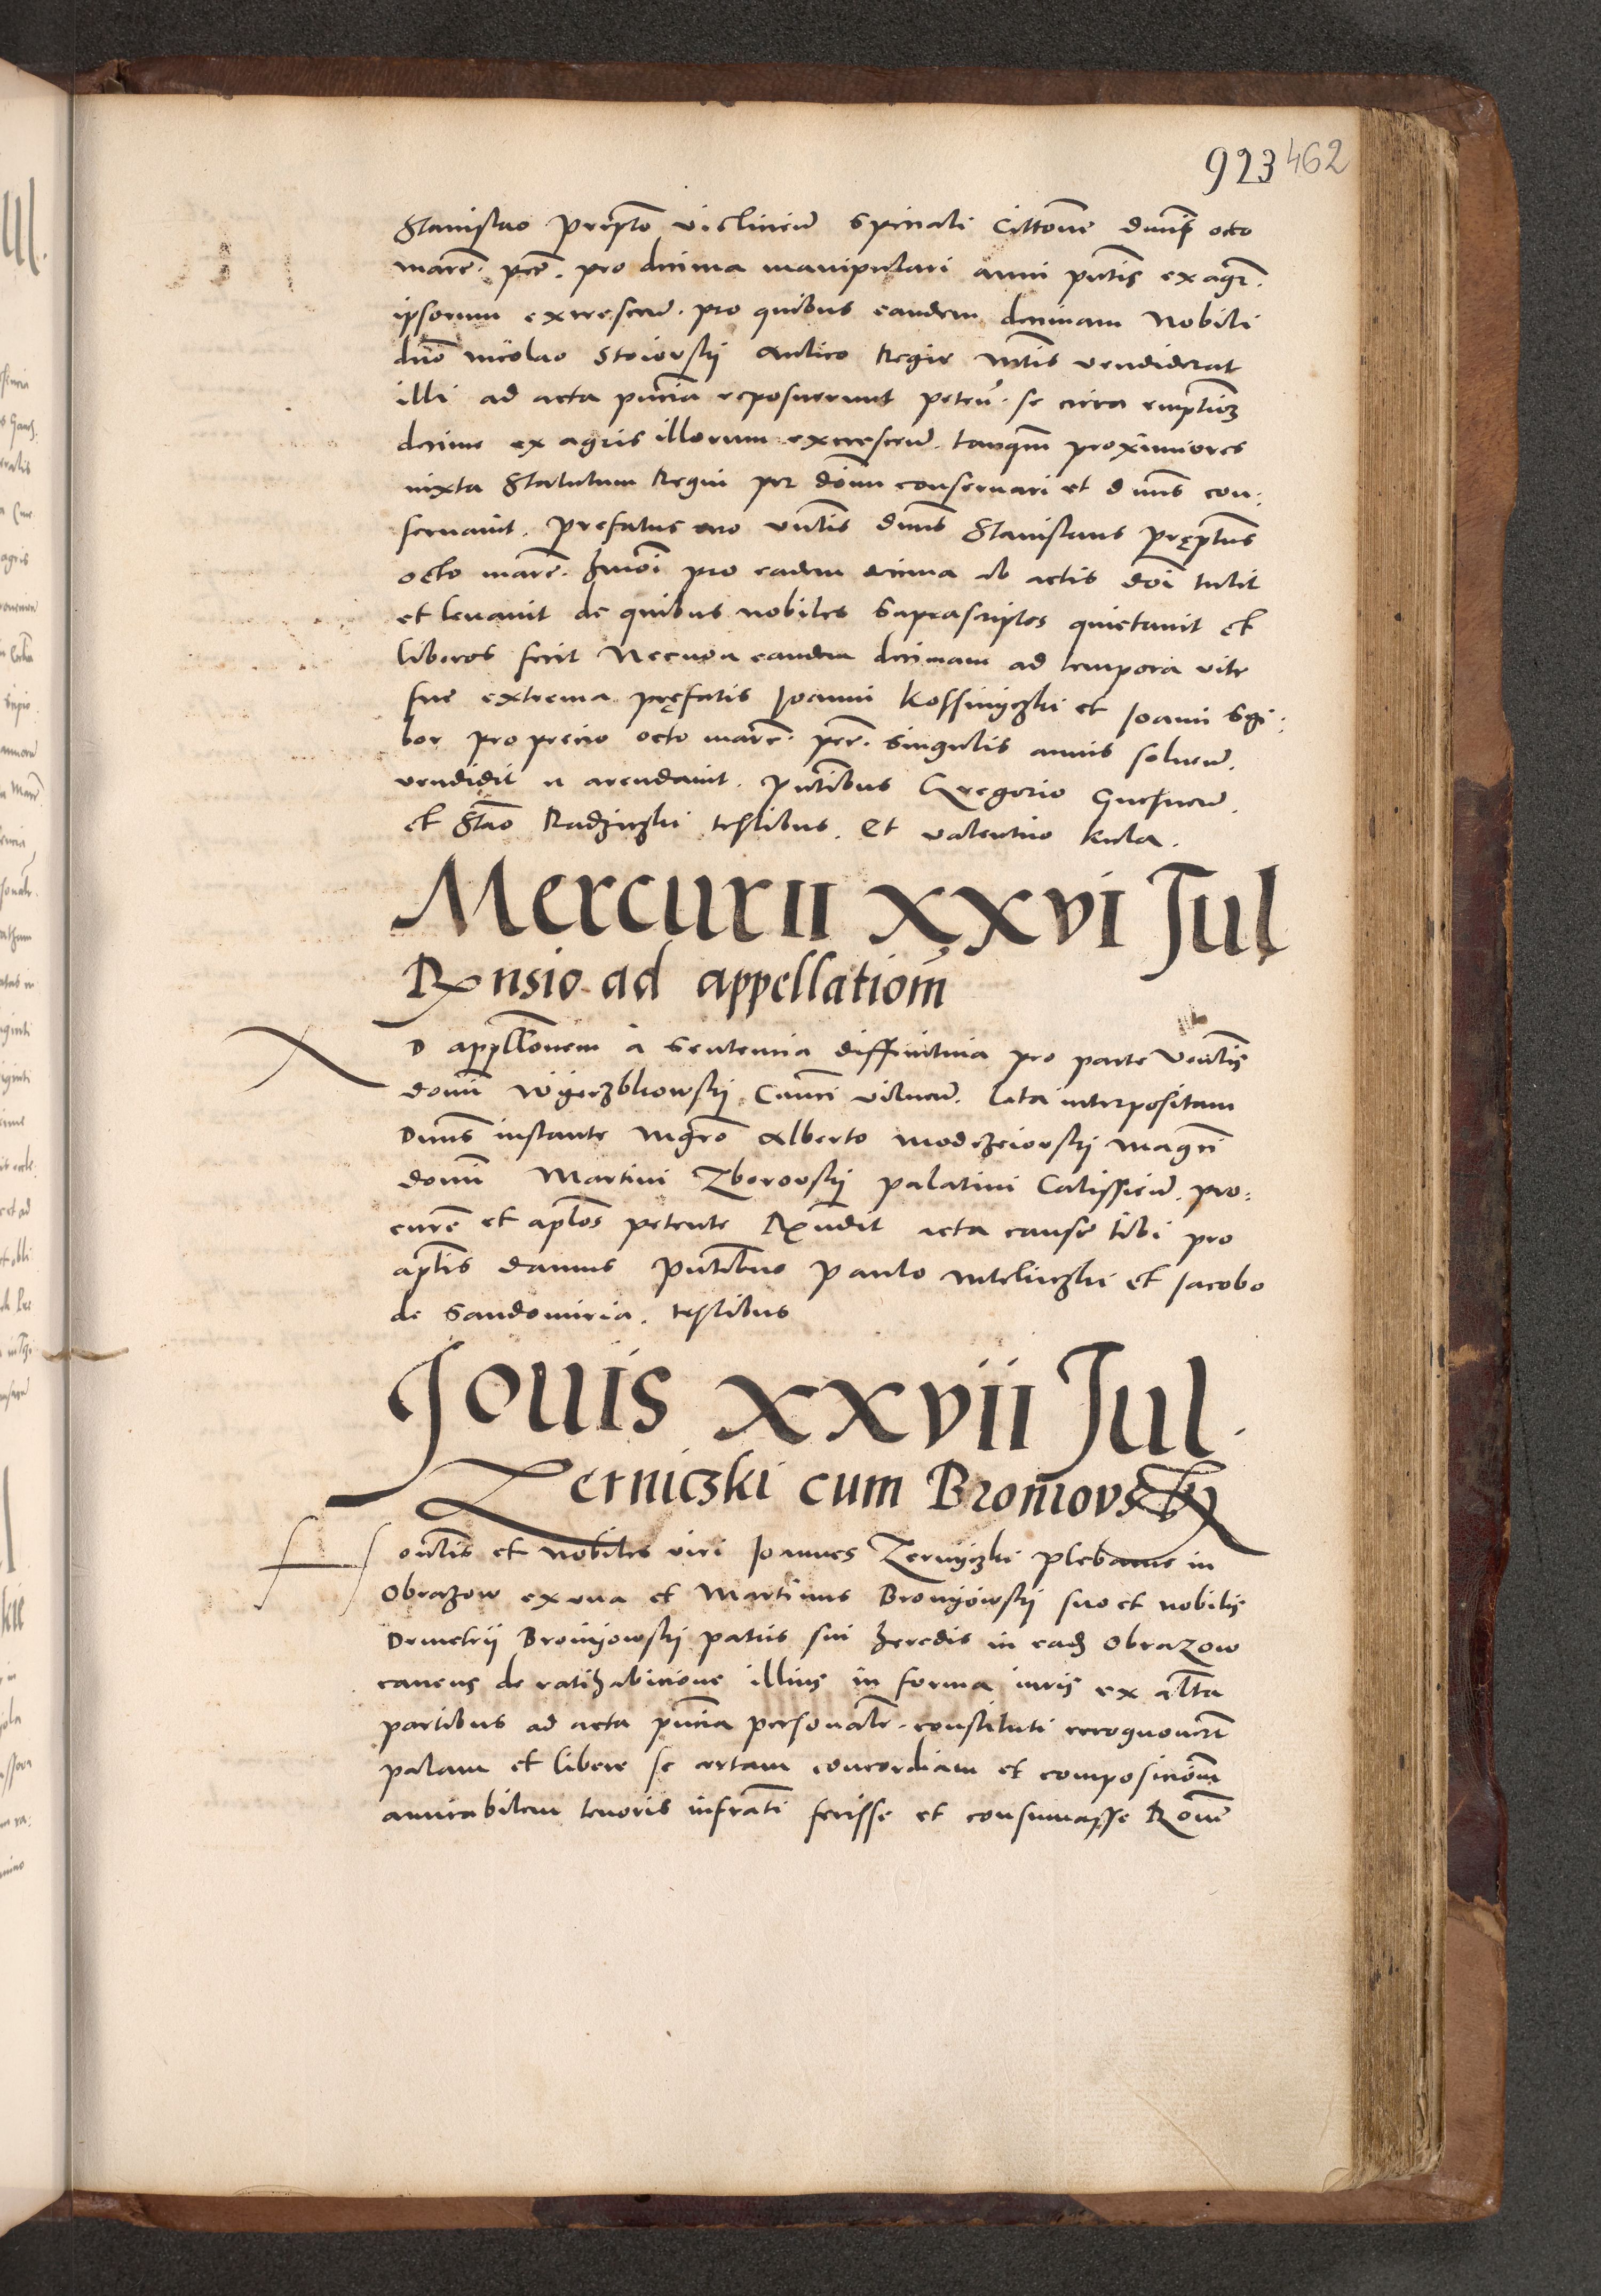 923 462
Stanislao Prepto vislicień speciali Cittone dnus octo
marc̄. pec̄. pro decima manipulari anni pntis ex agr̄.
ipsorum excrescen̄. pro quibus eandem decimam Nobili
dno nicolao Stoiovskij Aulico Regie mtis vendiderat
illi ad acta pncia reposuerunt peten̄. se circa emptioē
decime ex agris illorum excrescen̄. tanqm proximiores
iuxta Statutum Regni per dnm conservari et dnus con-
servavit. Prefatus vero vntis dnus Stanislaus pręptus
octo marc̄. hmoi pro eadem decima ab actis dni tulit
et levavit de quibus nobiles Suprascriptos quietavit et
liberos fecit Necnon eandem decimam ad tempora vite
sue extrema pręfatis Joanni Kossinyczki et Joanni Sgi-
bor pro precio octo marc̄. pec̄. singulis annis solven̄.
vendidit et arendavit. pntibus Gregorio Gnesnen̄.
et Stao Radziczki testibus. Et valentino Kula.
Mercurii xxvi Jul
Rxnsio ad appellationm
D appellonem a Sententia diffinitiva pro parte Ventis
domi Wyerzbkowskij Canci vilnen̄. lata interpositam
Dnus instante mgro Alberto modrzeiovskij magci
domi Martini Zborovskij palatini Calissien̄. pro-
curē et aplos petente Rxndit acta cause tibi pro
aplis damus pntibus Paulo mieliczki et Jacobo
de Sandomiria. testibus
Jovis xxvii Jul.
Zerniczki cum Broniovskij
Hontis et nobiles viri Joannes Zernyczki plebanus in
Obrazow ex una et Martinus Bronyowskij suo et nobilis
Demetrij Bronyowskij patris sui heredis in eadē Obrazow
cavens de ratihabicione illius in forma iuris ex alta
partibus ad acta pncia personalr̄ constituti recognovert
palam et libere se certam concordiam et composicionm
amicabilem tenoris infrati fecisse et consumasse Ronē